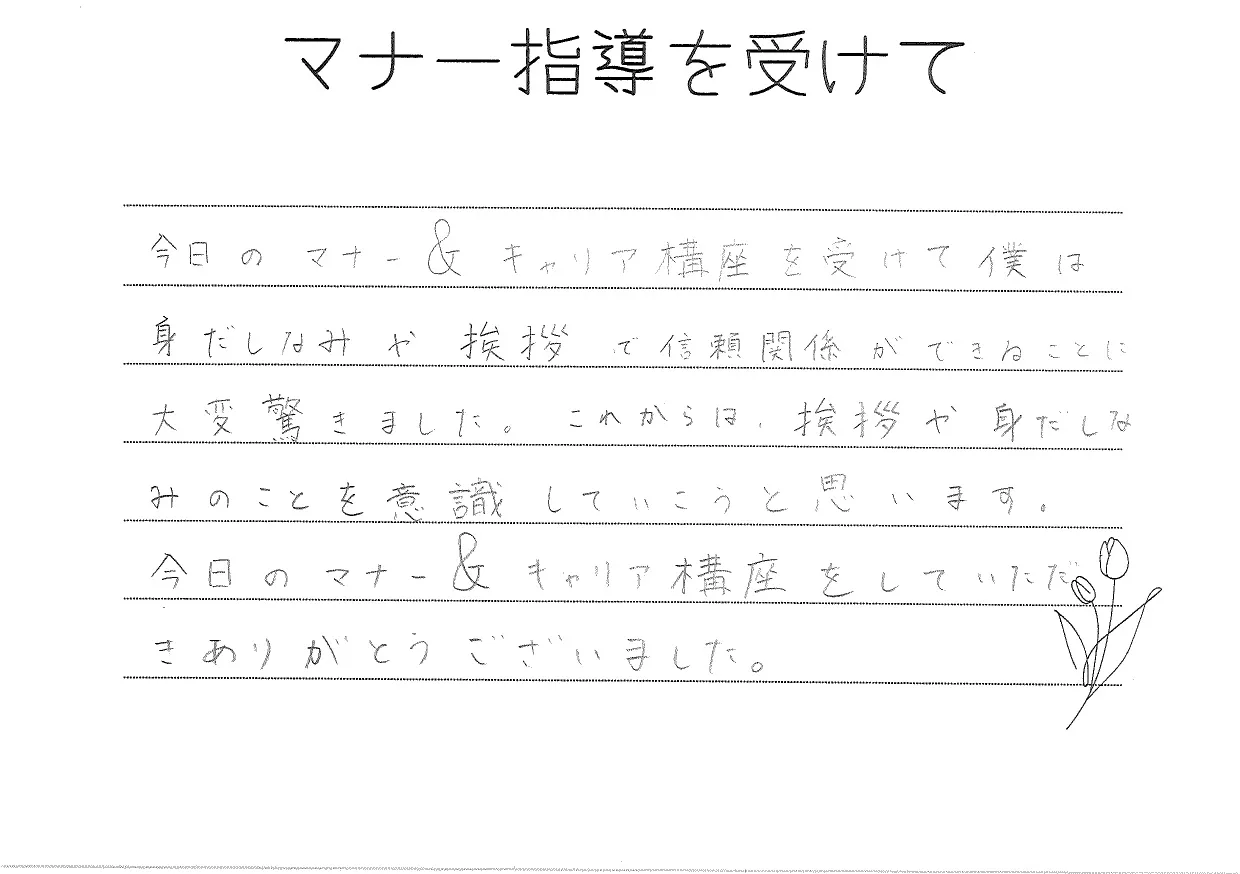 マナー指導を受けて
今日のマナー&キャリア構座を受けて僕は
身だしなみや挨拶で信頼関係ができることに
大変驚きました。これからは、挨拶や身だしな
みのことを意識していこうと思います。
今日のマナー&キャリア構座をしていただ
きありがとうございました。